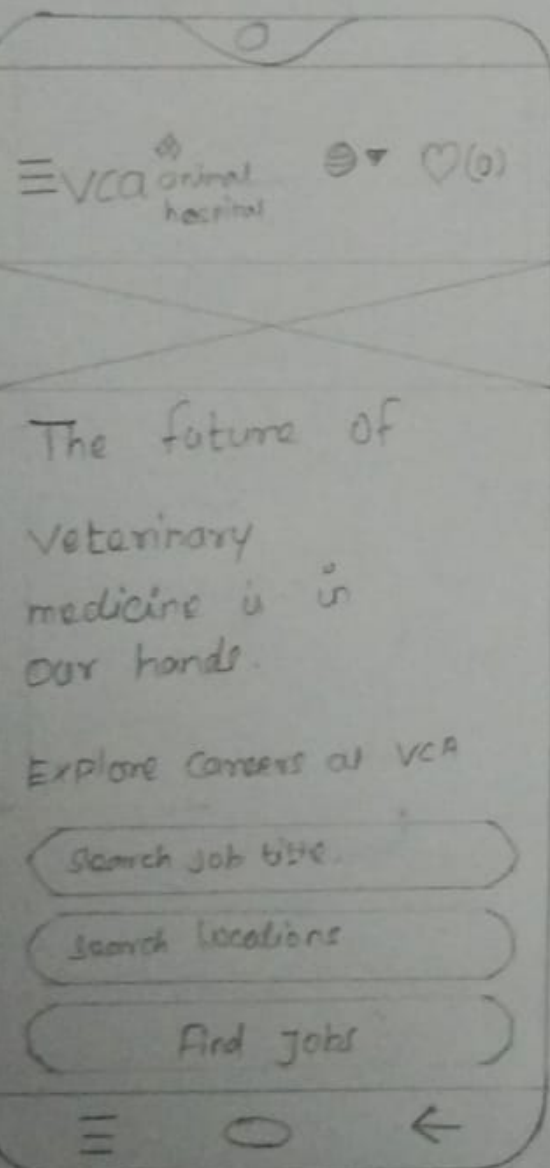 VCA animal
hospital
(0)
The future of
veterinary
medicine is in
our hands.
Explore Careers at VCA
Search job title.
Search Locations
Find Jobs